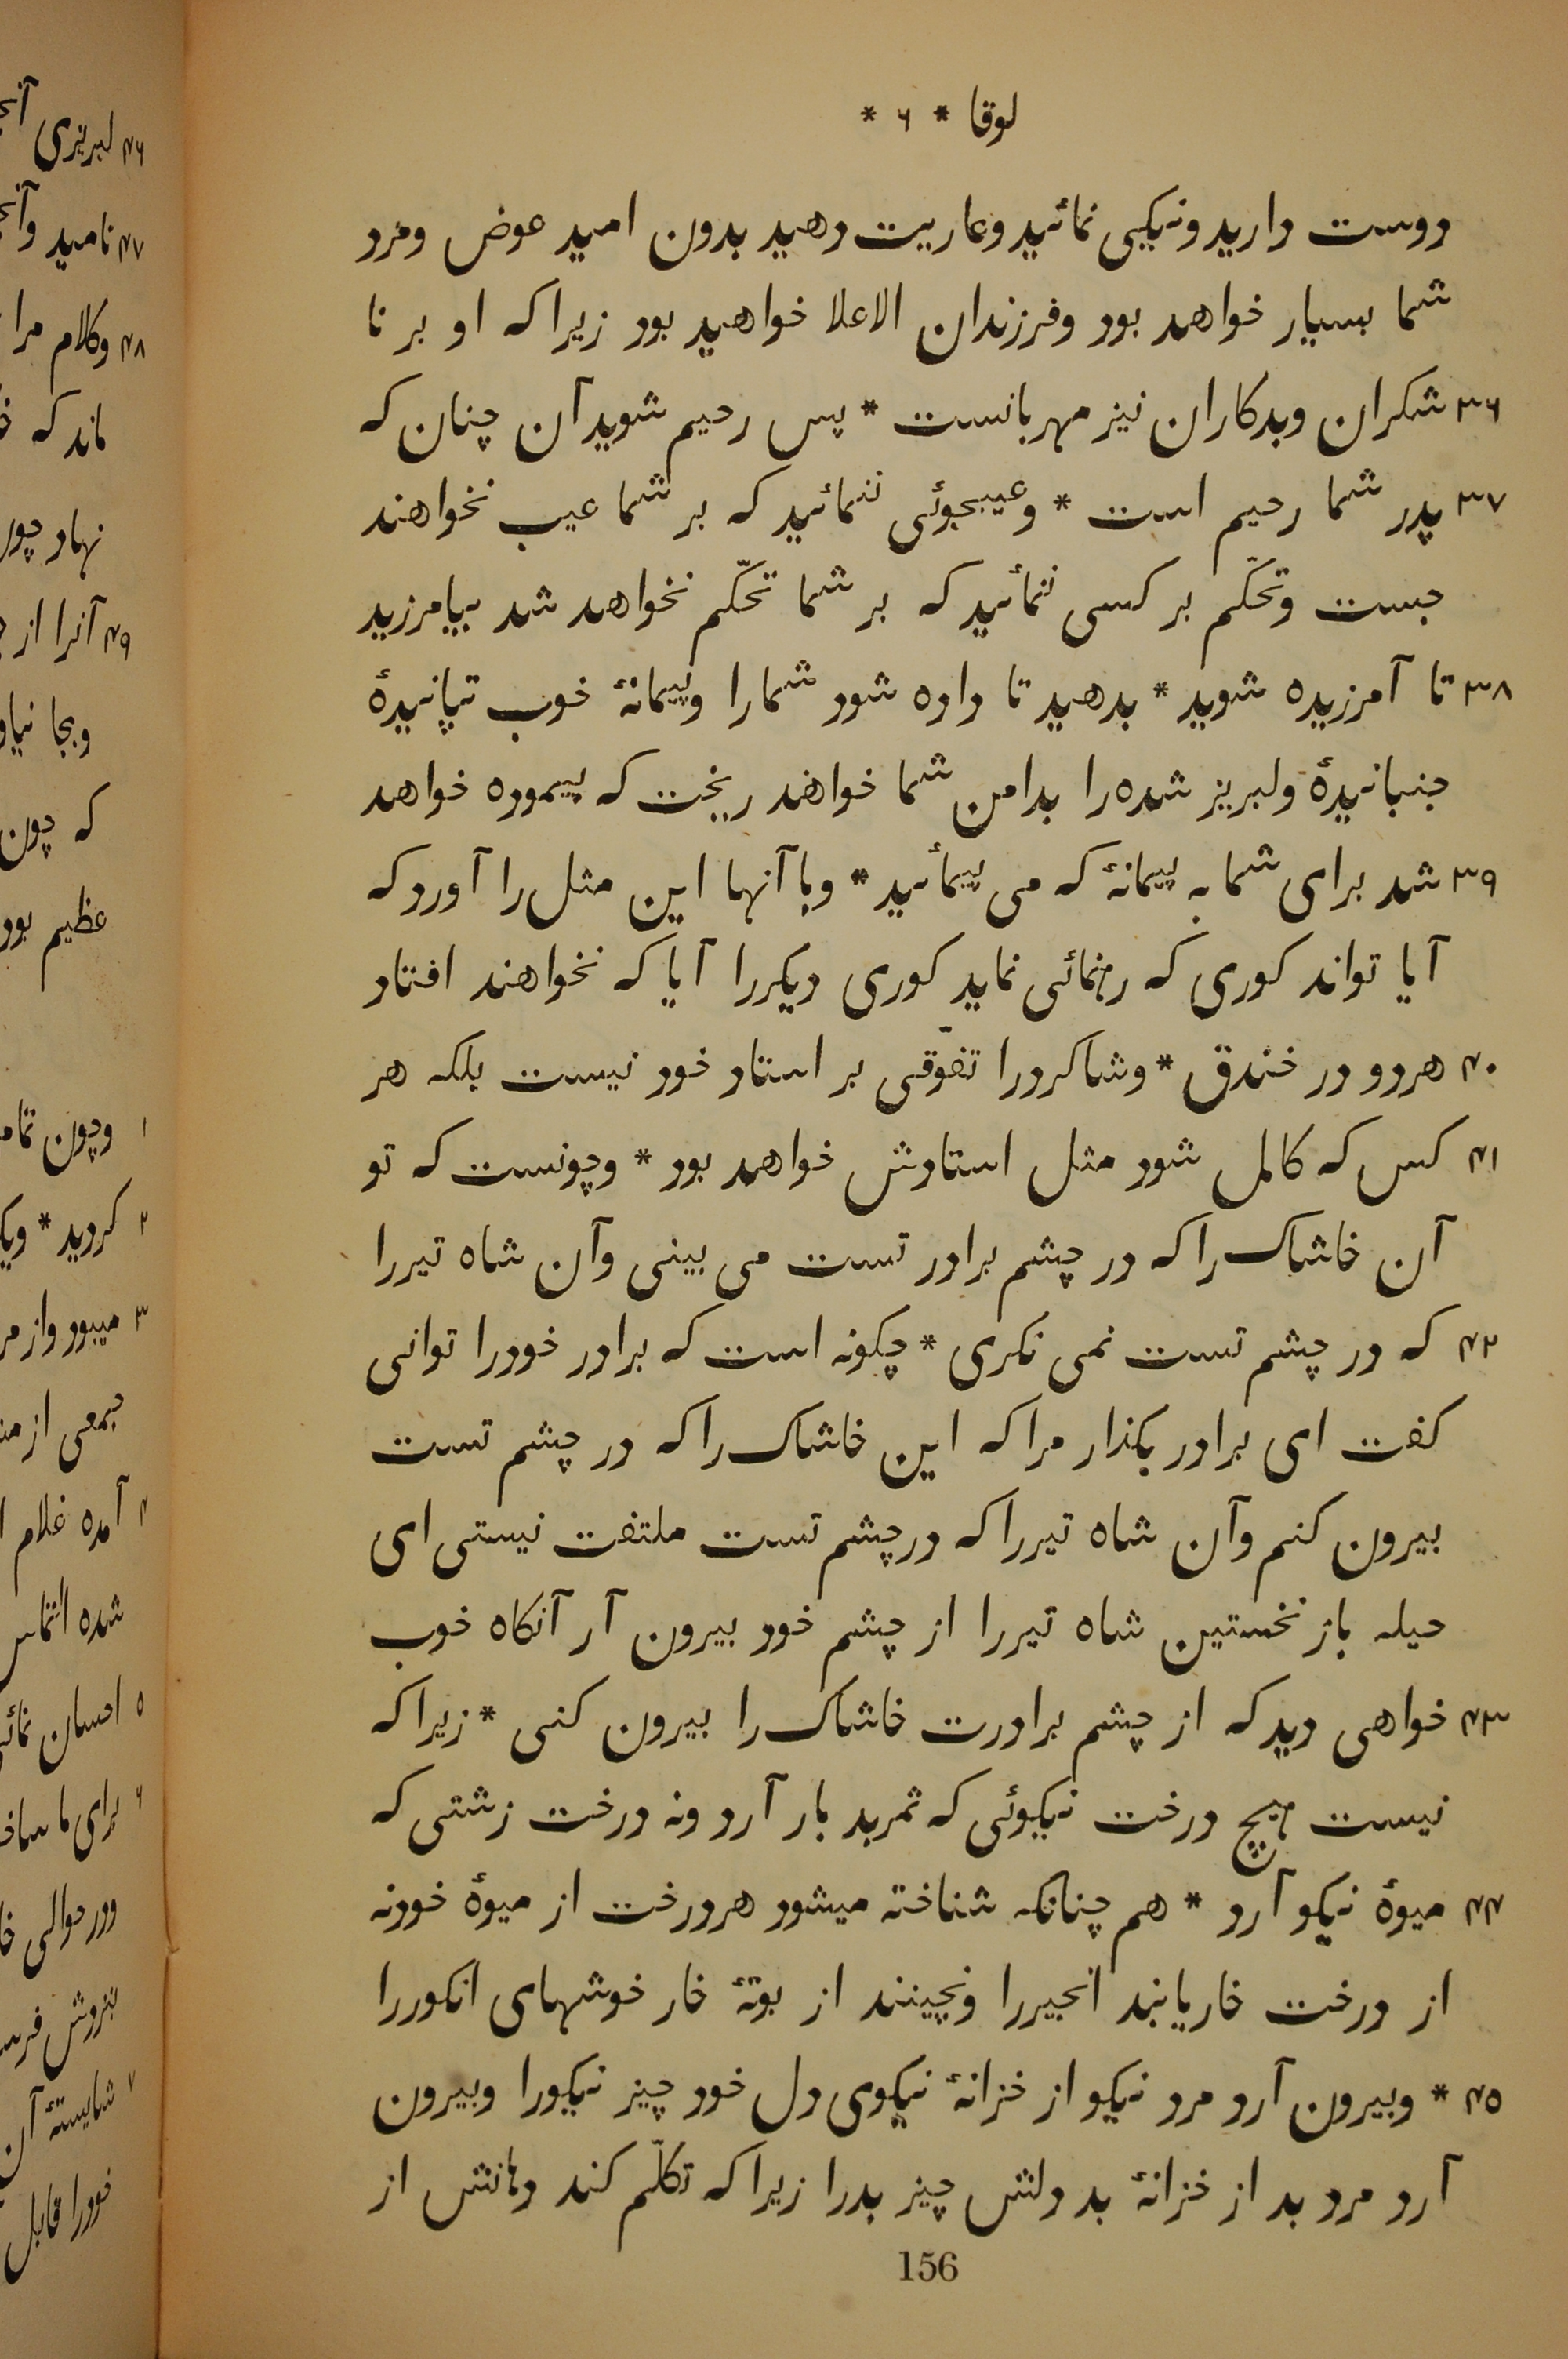 لوقا * ۶ *
دوست دارید ونیکیی نمائید وعاریت دهید بدون امید عوض ومزد
شما بسیار خواهد بود وفرزندان الاعلا خواهید بود زیرا که او بر نا
۳۶ شکران وبدکاران نیز مهربانست * پس رحیم شوید آن چنان که
۳۷ پدر شما رحیم است * وعیبجوئی ننمائید که بر شما عیب نخواهند
جست وتحکّم بر کسی ننمائید که بر شما تحکّم نخواهد شد بیامرزید
۳۸ تا آمرزیده شوید * بدهید تا داده شود شمارا وپیمانهٔ خوب تپانیدهٔ
جنبانیدهٔ ولبریز شده را بدامن شما خواهند ریخت که پیموده خواهد
۳۹ شد برای شما به پیمانهٔ که می پیمائید * وبا آنها این مثل را آورد که
آیا تواند کوری که رهنمائی نماید کوری دیکررا آیا که نخواهند افتاد
۴۰ هردو در خندق * وشاکردرا تفوّقی بر استاد خود نیست بلکه هر
۴۱ کس که کامل شود مثل استادش خواهد بود * وچونست که تو
آن خاشاک را که در چشم برادر تست می بینی وآن شاه تیررا
۴۲ که در چشم تست نمی نکری * چکونه است که برادر خودرا توانی
کفت ای برادر بکذار مرا که این خاشاک را که در چشم تست
بیرون کنم وآن شاه تیررا که درچشم تست ملتفت نیستی ای
حیله باز نخستین شاه تیررا از چشم خود بیرون آر آنکاه خوب
۴۳ خواهی دید که از چشم برادرت خاشاک را بیرون کنی * زیرا که
نیست هیچ درخت نیکوئی که ثمربد بار آرد ونه درخت زشتی که
۴۴ میوهٔ نیکو آرد * هم چنانکه شناخته میشود هردرخت از میوهٔ خودنه
از درخت خاریابند انجیررا ونچینند از بوتهٔ خار خوشهای انکوررا
۴۵ * وبیرون آرد مرد نیکو از خزانهٔ نیکوی دل خود چیز نیکورا وبیرون
آرد مرد بد از خزانهٔ بد دلش چیز بدرا زیرا که تکلّم کند دهانش از
156
۴۶ لبریزی
۴۷ نامید
۴۸ وکلام مرا
ماند که
نهاد چون
۴۹ آنرا از
وبجا
که چون
عظیم بود
۱ وچون
۲ کردید *
۳ میبود واز
جمعی از
۴ آمده غلام
شده التماس
۵ احسان
۶ برای ما
ودر حوالی
بنزدش
۷ شایستهٔ آن
خودرا قابل